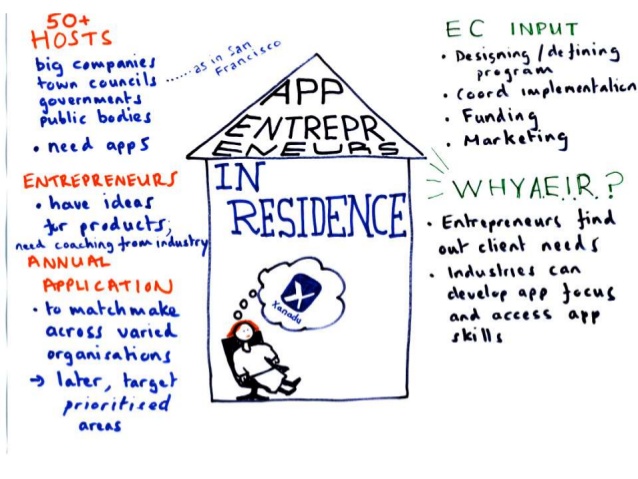 50+
HOSTS
big companies
town councils
governments
public bodies
......as in San
Francisco
• need apps
ENTREPRENEURS
• have ideas
for products;
need coaching from industry
ANNUAL
APPLICATION
• to matchmake
across varied
organisations
→ later, target
prioritised
areas
APP
ENTREPR
ENEURS
IN
RESIDENCE
X
Xanadu
EC INPUT
• Designing/defining
program
• Coord implementation
• Funding
• Marketing
WHY A.E.I.R.?
• Entrepreneurs find
out client needs
• Industries can
develop app focus
and access app
skills